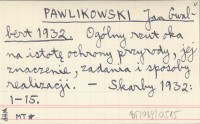 PAWLIKOWSKI Jan Gwal-
bert 1932. Ogólny rzut oka
na istotę ochrony przyrody, jej
znaczenie, zadania i sposoby
realizacji. — Skarby 1932:
1-15.
MT*